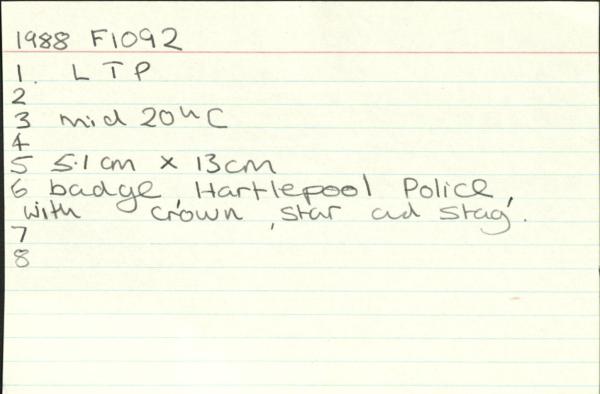 1988 F1092
1. L T P
2
3 mid 20th C
4
5 5.1cm x 13cm
6 badge, Hartlepool Police,
with crown, star ad stag.
7
8